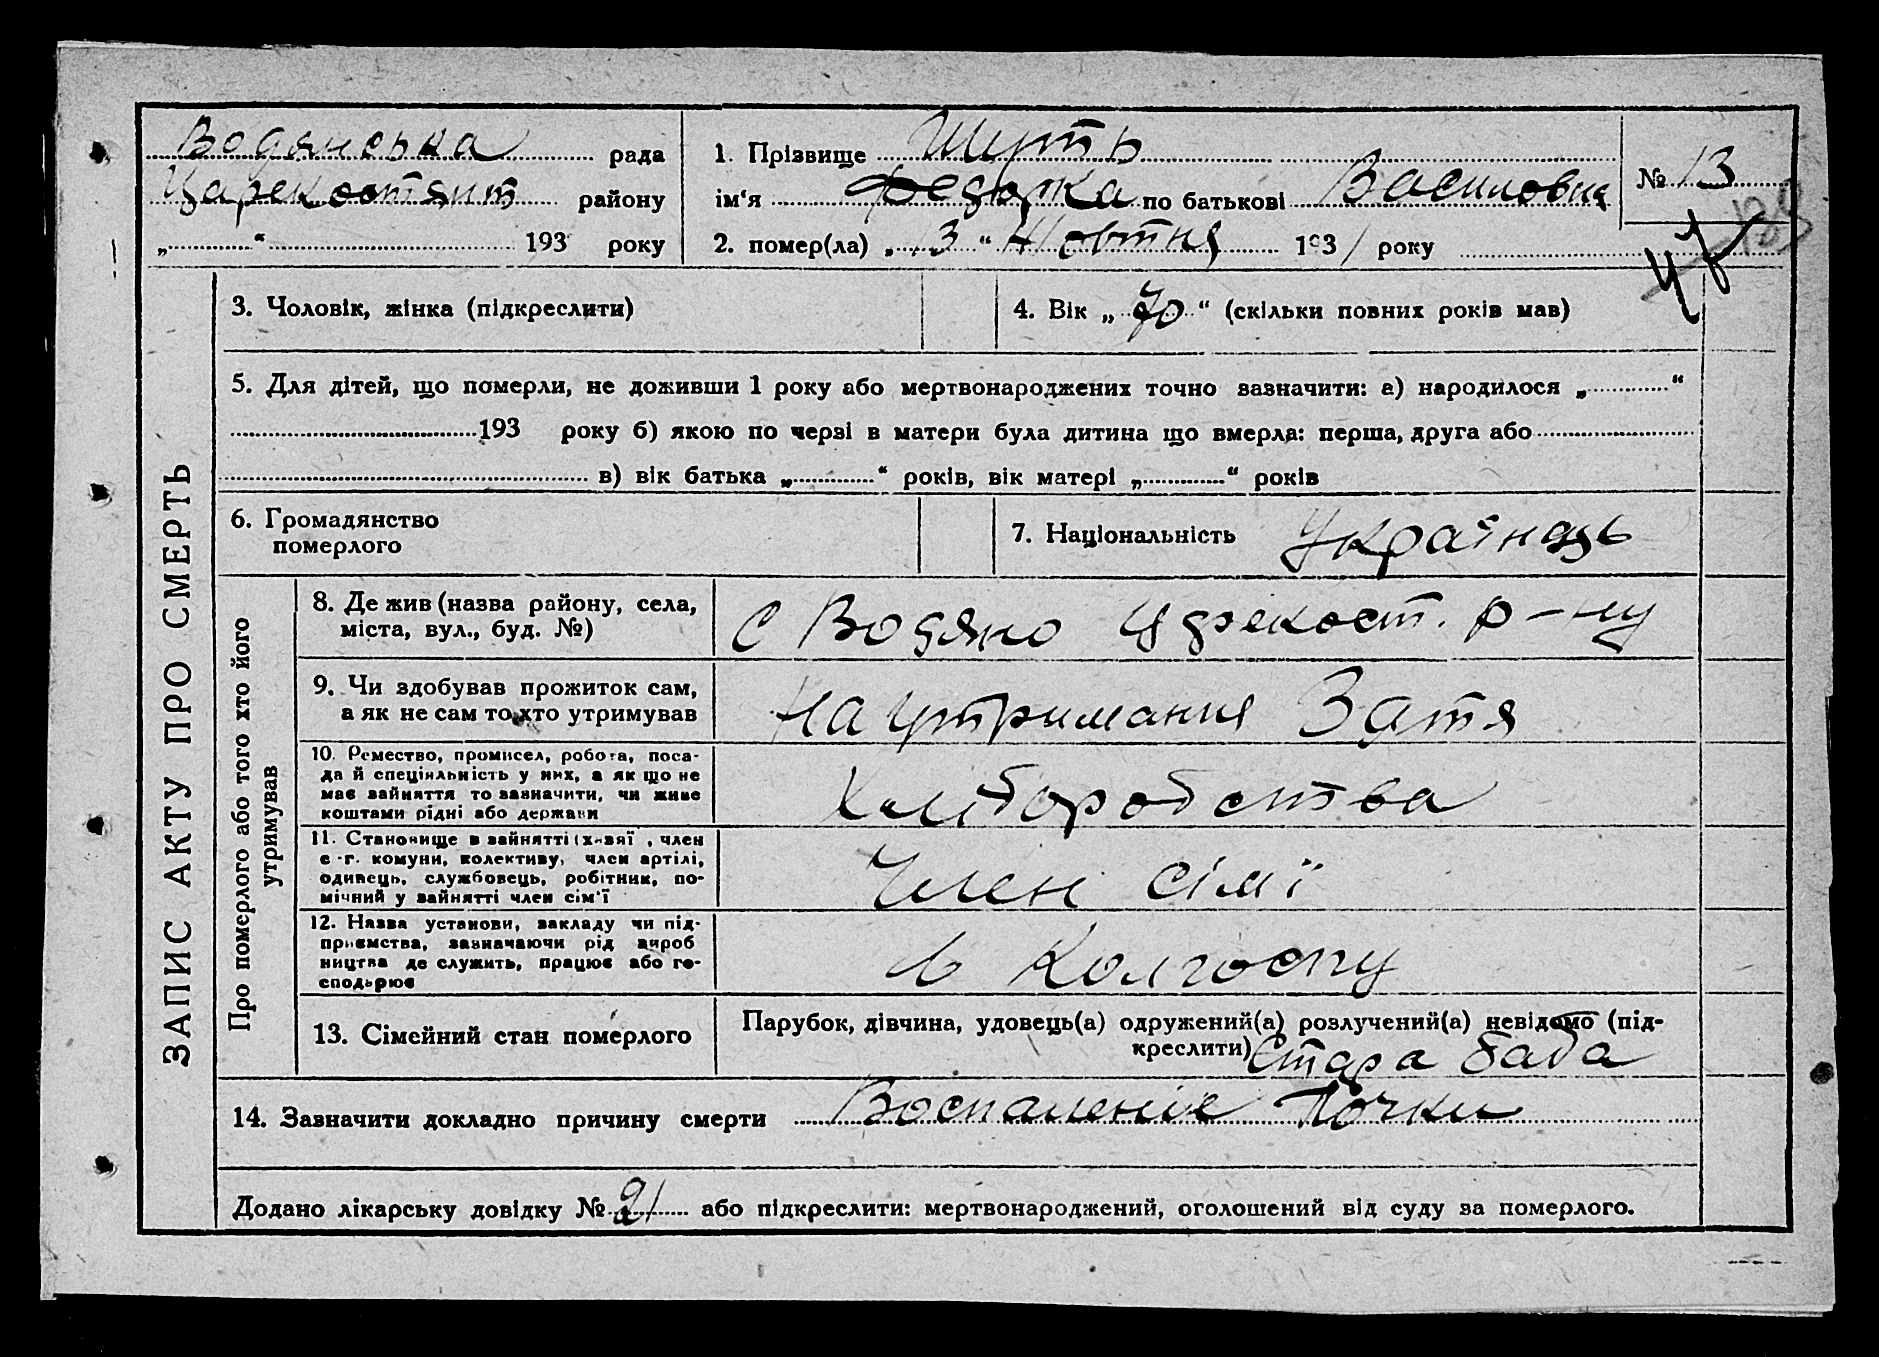 Водянська рада
Царекостянт району
„ “ 193 року
1. Прізвище Шуть
ім‘я Федорка по батькові Василовна
2. помер(ла) „ 3 “ Жовтня 1931 року
№ 13
47
ЗАПИС АКТУ ПРО СМЕРТЬ
3. Чоловік, жінка (підкреслити)
4. Вік „ 70 “ (скільки повних років мав)
5. Для дітей, що померли, не доживши 1 року або мертвонароджених точно зазначити: а) народилося „ “
193 року б) якою по черзі в матери була дитина що вмерла: перша, друга або
в) вік батька „ “ років, вік матері „ “ років
6. Громадянство
померлого
7. Національність Українець
Про померлого або того хто його
утримував
8. Де жив (назва району, села,
міста, вул., буд. №)
с Водяно Царекост. р-ну
9. Чи здобував прожиток сам,
а як не сам то хто утримував
На утримания Затя
10. Ремество, промисел, робота, поса-
да й спеціяльність у них, а як що не
має зайняття то зазначити, чи живе
коштами рідні або держави
Хлиборобства
11. Становище в зайнятті (хазяї , член
с-г. комуни, колективу, член артілі,
одинець, службовець, робітник, по-
мічний у зайнятті член сім‘ї
Член сімї
12. Назва установи, закладу чи під-
приємства, зазначаючи рід вироб
ництва де служить, працює або го-
сподарює
в Колгоспу
13. Сімейний стан померлого
Парубок, дівчина, удовець(а) одружений(а) розлучений(а) невідомо (під-
креслити) Стара баба
14. Зазначити докладно причину смерти Воспаление Почки
Додано лікарську довідку № 21 або підкреслити: мертвонароджений, оголошений від суду за померлого.